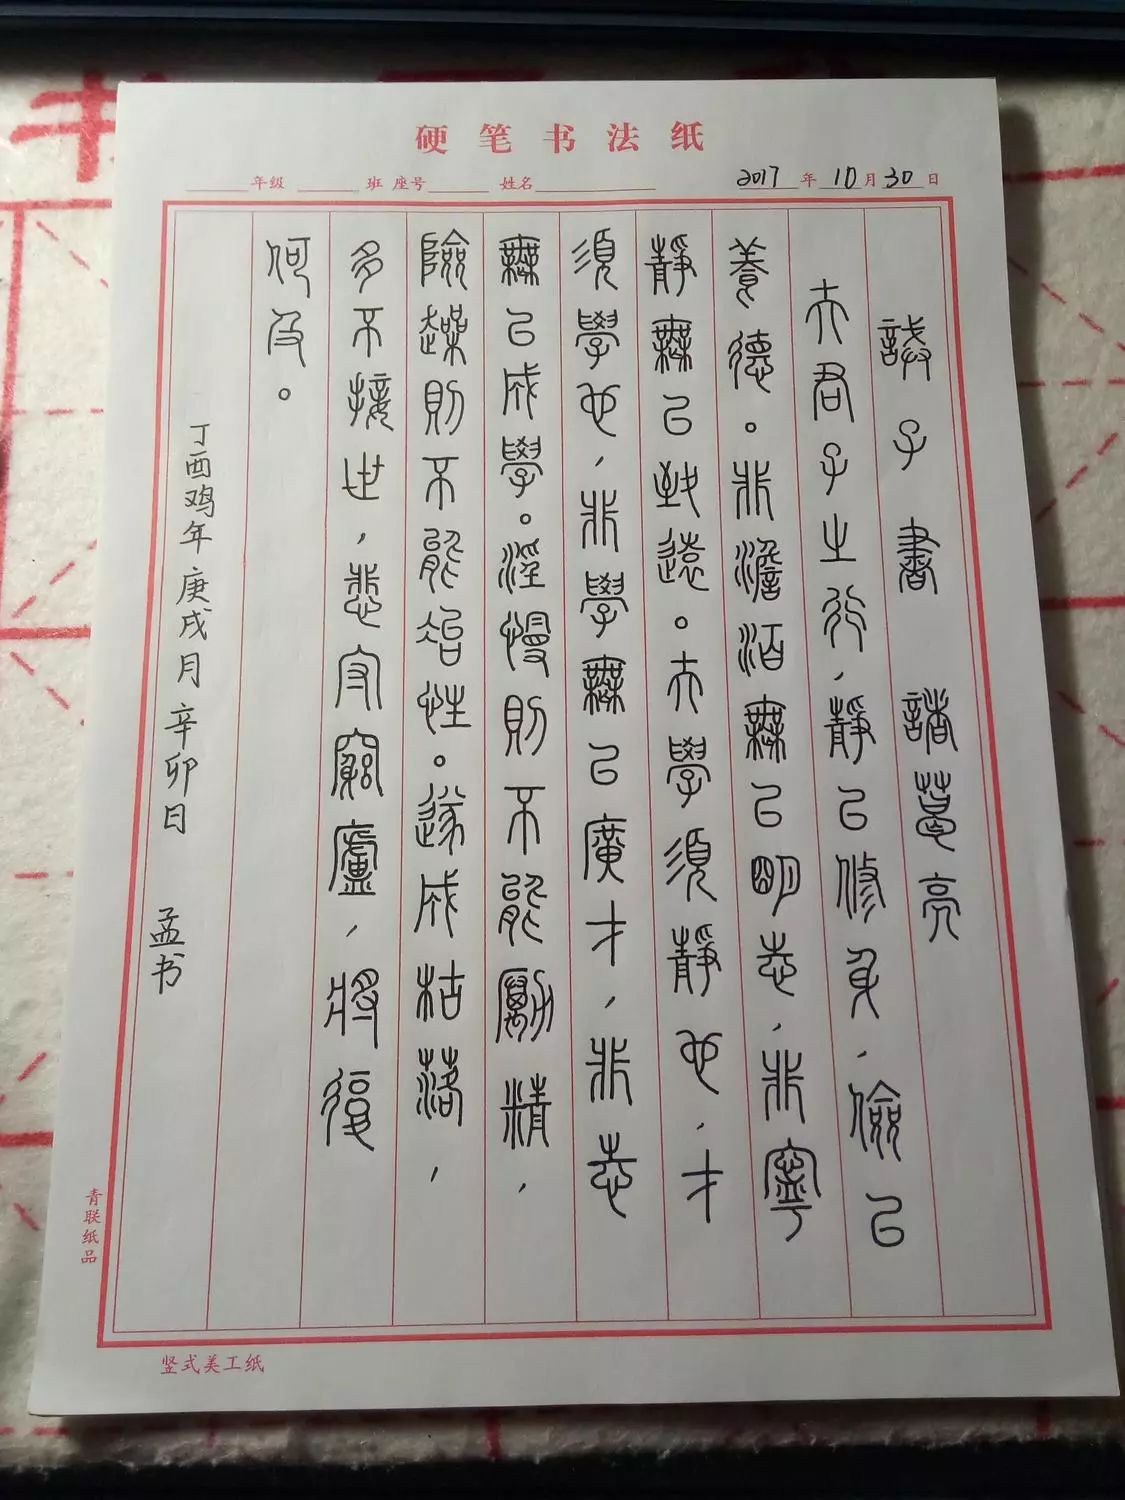 硬笔书法纸
年级 班 座号 姓名 2017年10月30日
誡子書 諸葛亮
夫君子之行,靜以修身,儉以
養德。非澹泊無以明志,非寧
靜無以致遠。夫學須靜也,才
須學也,非學無以廣才,非志
無以成學。淫慢則不能勵精,
險躁則不能治性。遂成枯落,
多不接世,悲守窮廬,將復
何及。
丁酉鸡年庚戌月辛卯日 孟书
青联纸品
竖式美工纸